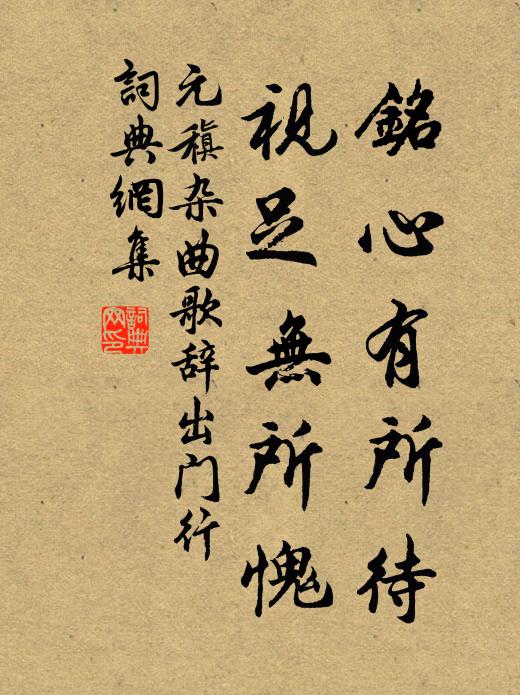 銘心有所待
視足無所愧
元稹杂曲歌辞出门行
詞典網集
詞典
网印